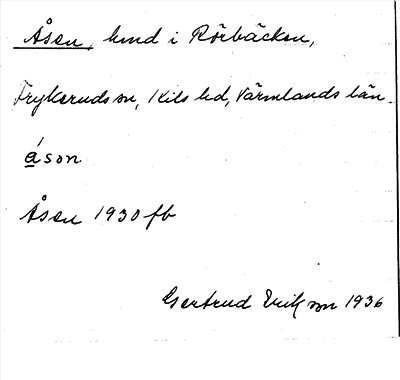 Åsen, hmd i Rörbäcken,
Frykeruds sn, Kils hd, Värmlands län.
á̱son
Åsen 1930 fb
Gertrud Eriksson 1936